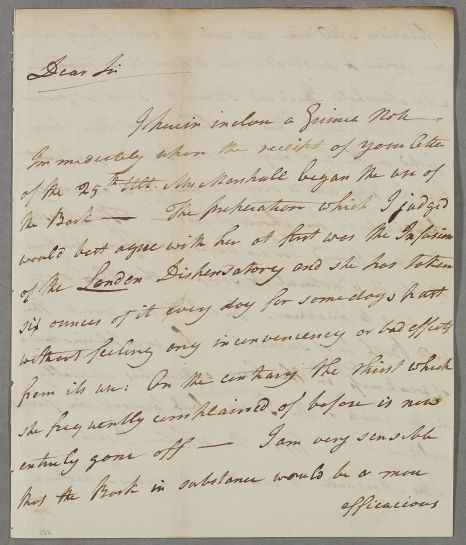 Dear Sir
I herein inclose a Guinea Note
Immediately upon the receipt of your letter
of the 25th Ult. Mrs Marshall began the use of
the Bark — The preparation which I judged
would best agree with her at first was the Infusion
of the London Dispensatory and she has taken
six ounces of it every day for some days past
without feeling any inconveniency or bad effects
from its use: On the contrary the thirst which
she frequently complained of before is now
entirely gone off — I am very sensible
that the Bark in substance would be a more
efficacious
132